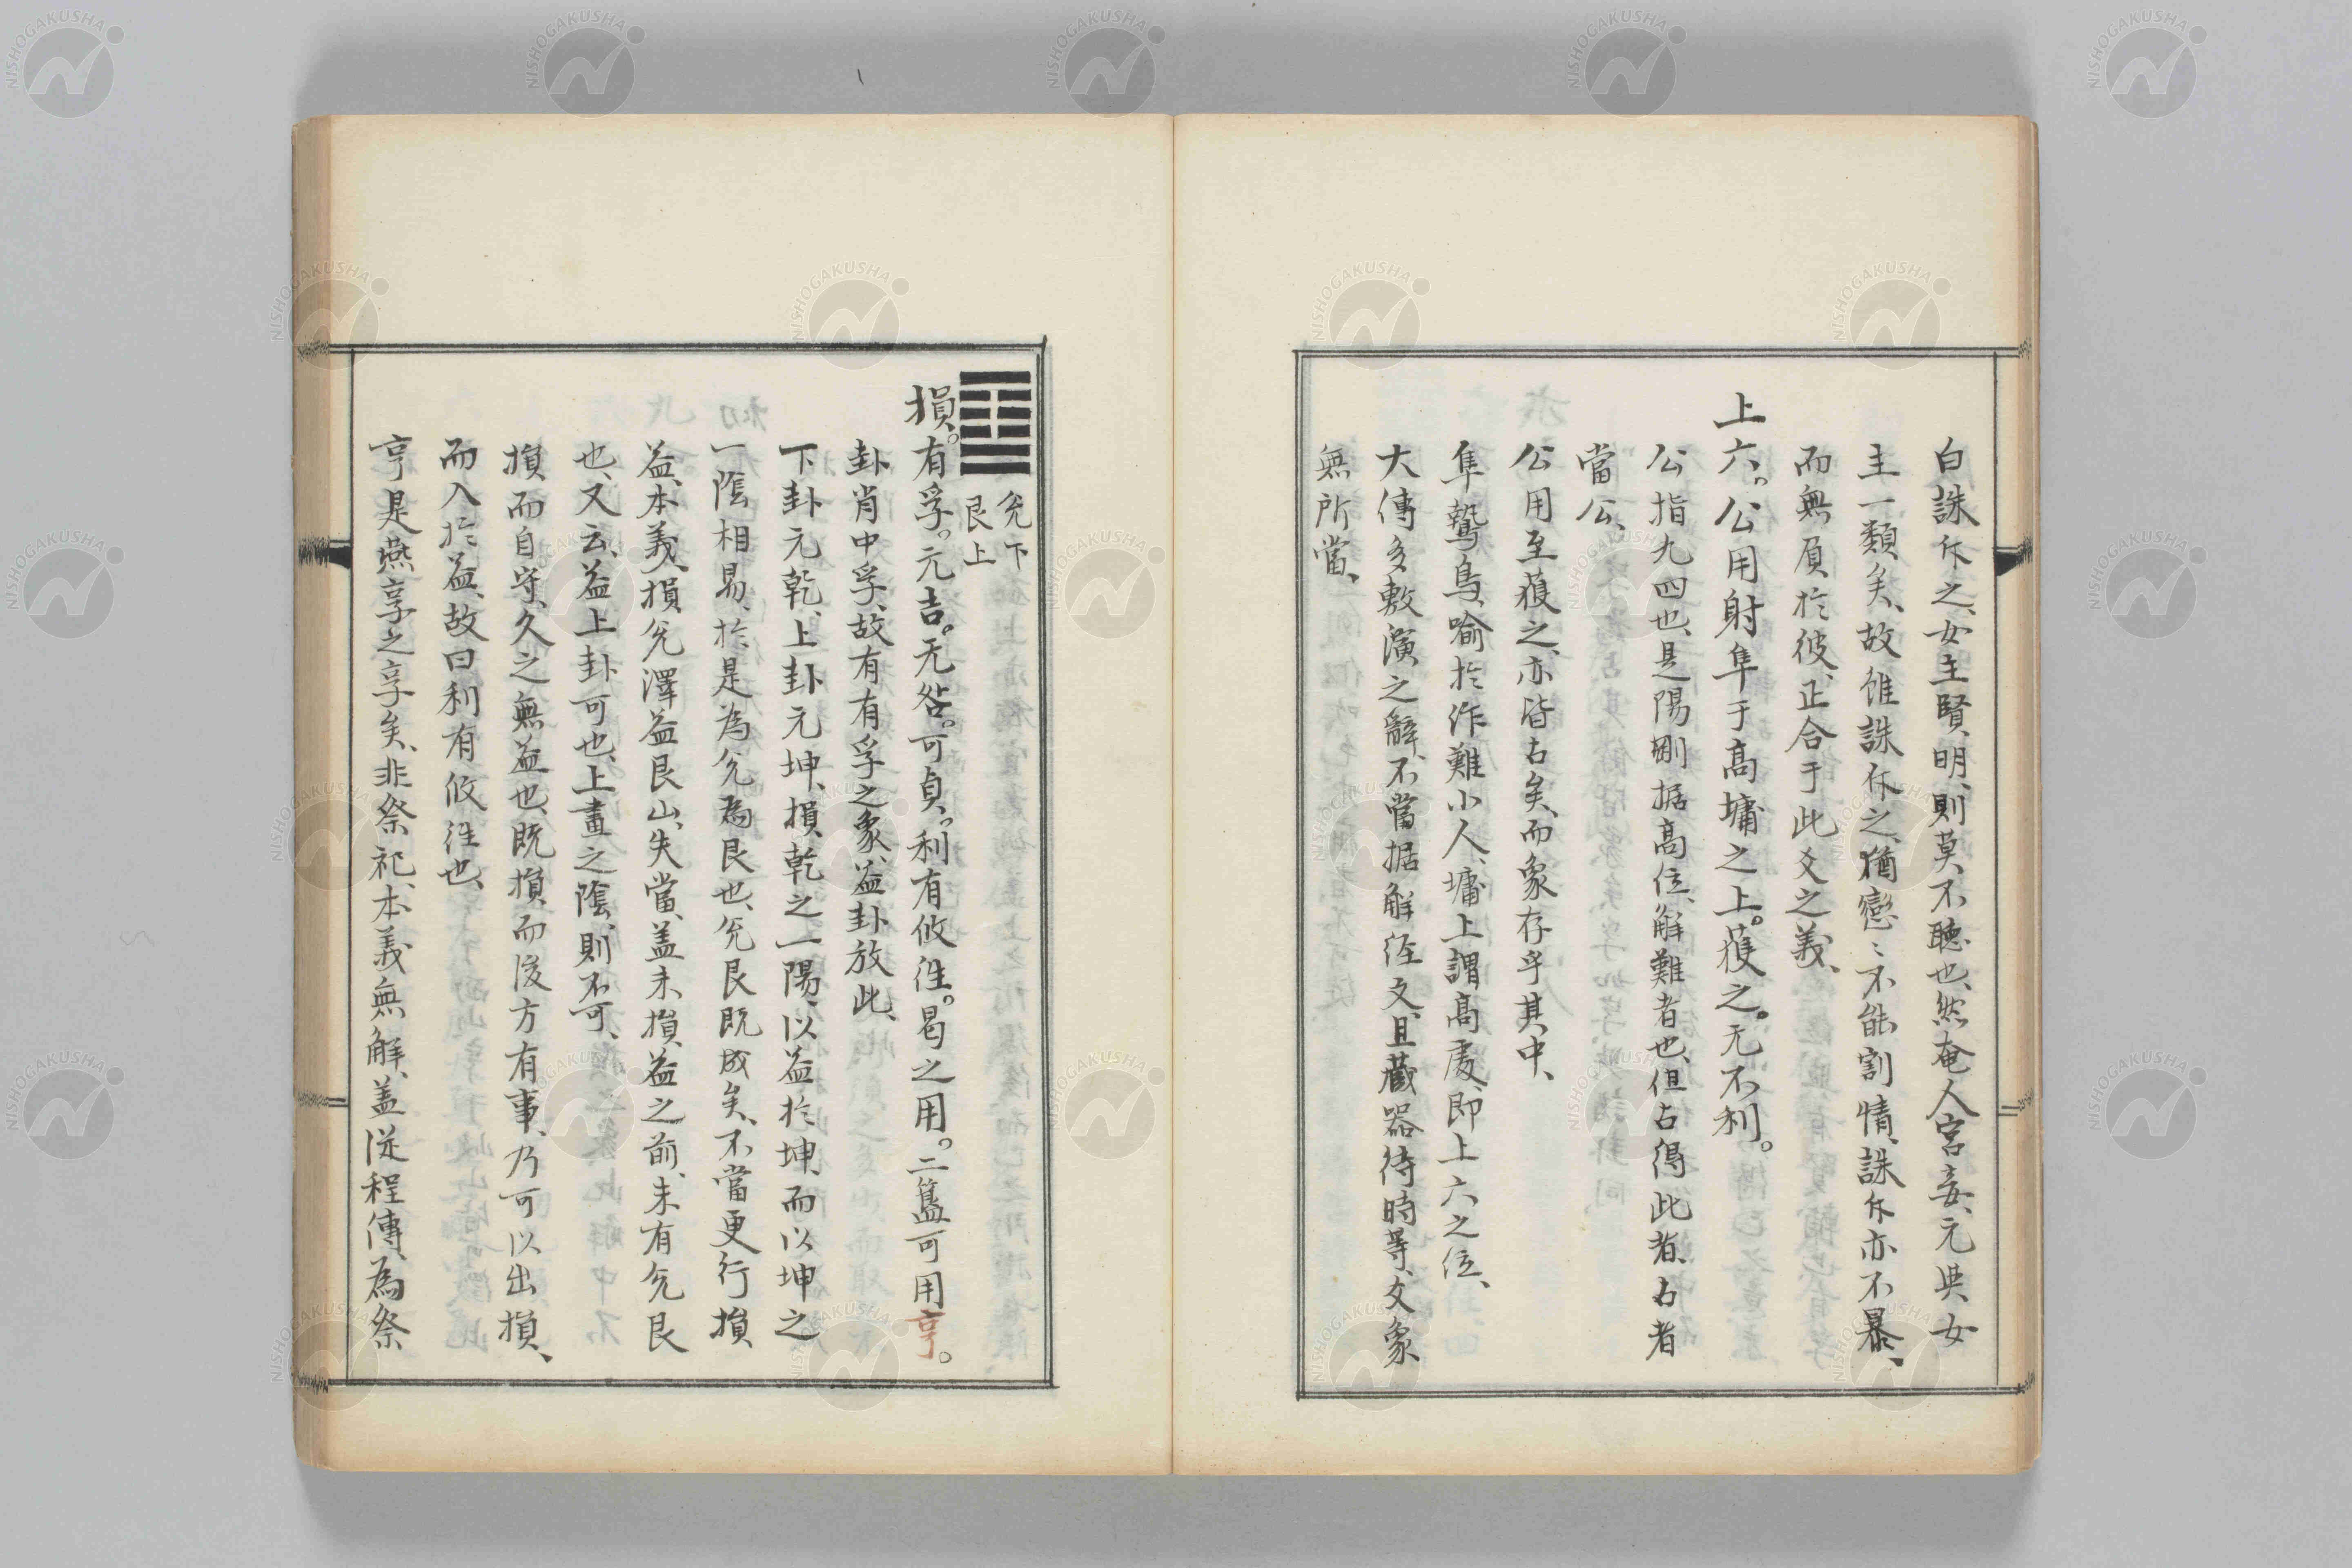 白誅斥之、女主賢明、則莫不聴也、然奄人宮妾、元與女
主一類矣、故雖誅斥之、猶戀〻不能割情、誅斥亦不暴、
而無屓於彼、正合于此爻之義、
上六。公用射隼于高墉之上。獲之。无不利。
公指九四也、是陽剛据高位、解難者也、但占得此者、占者
當公、
公用至獲之、亦皆占矣、而象存乎其中、
隼鷙鳥、喻於作難小人、墉上謂高處、即上六之位、
大傳多敷演之辭、不當据解經文、且藏器待時等、爻象
無所當、
兌下
艮上
損。有孚。元吉。无咎。可貞。利有攸往。曷之用。二簋可用亨。
卦肖中孚、故有有孚之象、益卦放此、
下卦元乾、上卦元坤、損乾之一陽、以益於坤、而以坤之
一陰相易、於是為兌為艮也、兌艮既成矣、不當更行損
益、本義、損兌澤益艮山、失當、蓋未損益之前、未有兌艮
也、又云、益上卦可也、上畫之陰、則不可、
損而自守、久之無益也、既損而後方有事、乃可以出損、
而入於益、故曰利有攸往也、
亨是燕享之享矣、非祭祀、本義無解、蓋從程傳、為祭